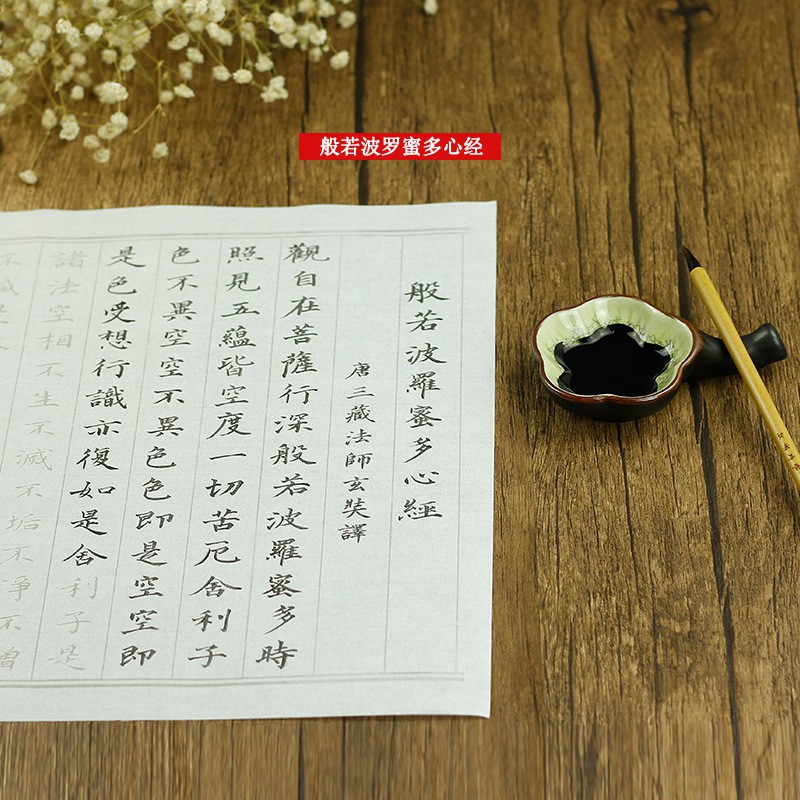 般若波罗蜜多心经
般若波羅蜜多心經
唐三藏法師玄奘譯
觀自在菩薩行深般若波羅蜜多時
照見五蘊皆空度一切苦厄舍利子
色不異空空不異色色即是空空即
是色受想行識亦復如是舍利子是
諸法空相不生不滅不垢不淨不增
不減是